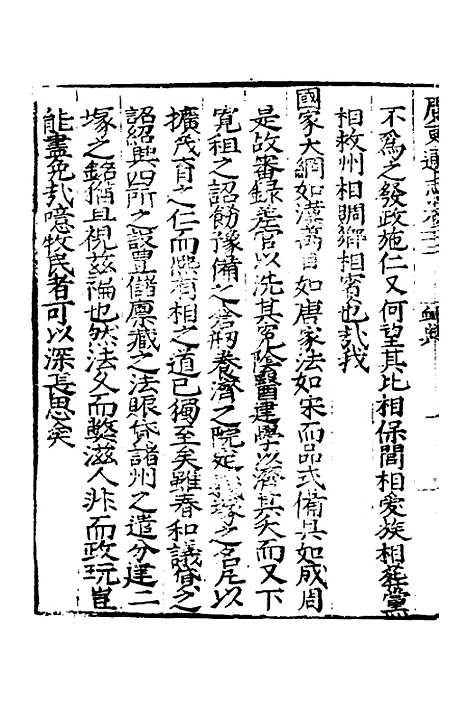 廣東通志卷三
不爲之發政施仁又何望其比相保閭相愛族相葬黨
相救州相賙鄉相賓也哉我
國家大綱如漢萬目如唐家法如宋而品式備具如成周
是故審錄差官以洗其冤陰醫建學以濟其夭而又下
寬租之詔飭豫備之倉剏養濟之院定義塚之名凡以
擴茂育之仁而熙有相之道已獨至矣雖春和議貸之
詔紹興四所之設置儲廩藏之法賑貸諸州之遣分達二
塚之銘猶且視茲褊也然法久而弊滋人非而政玩豈
能盡免哉噫牧民者可以深長思矣